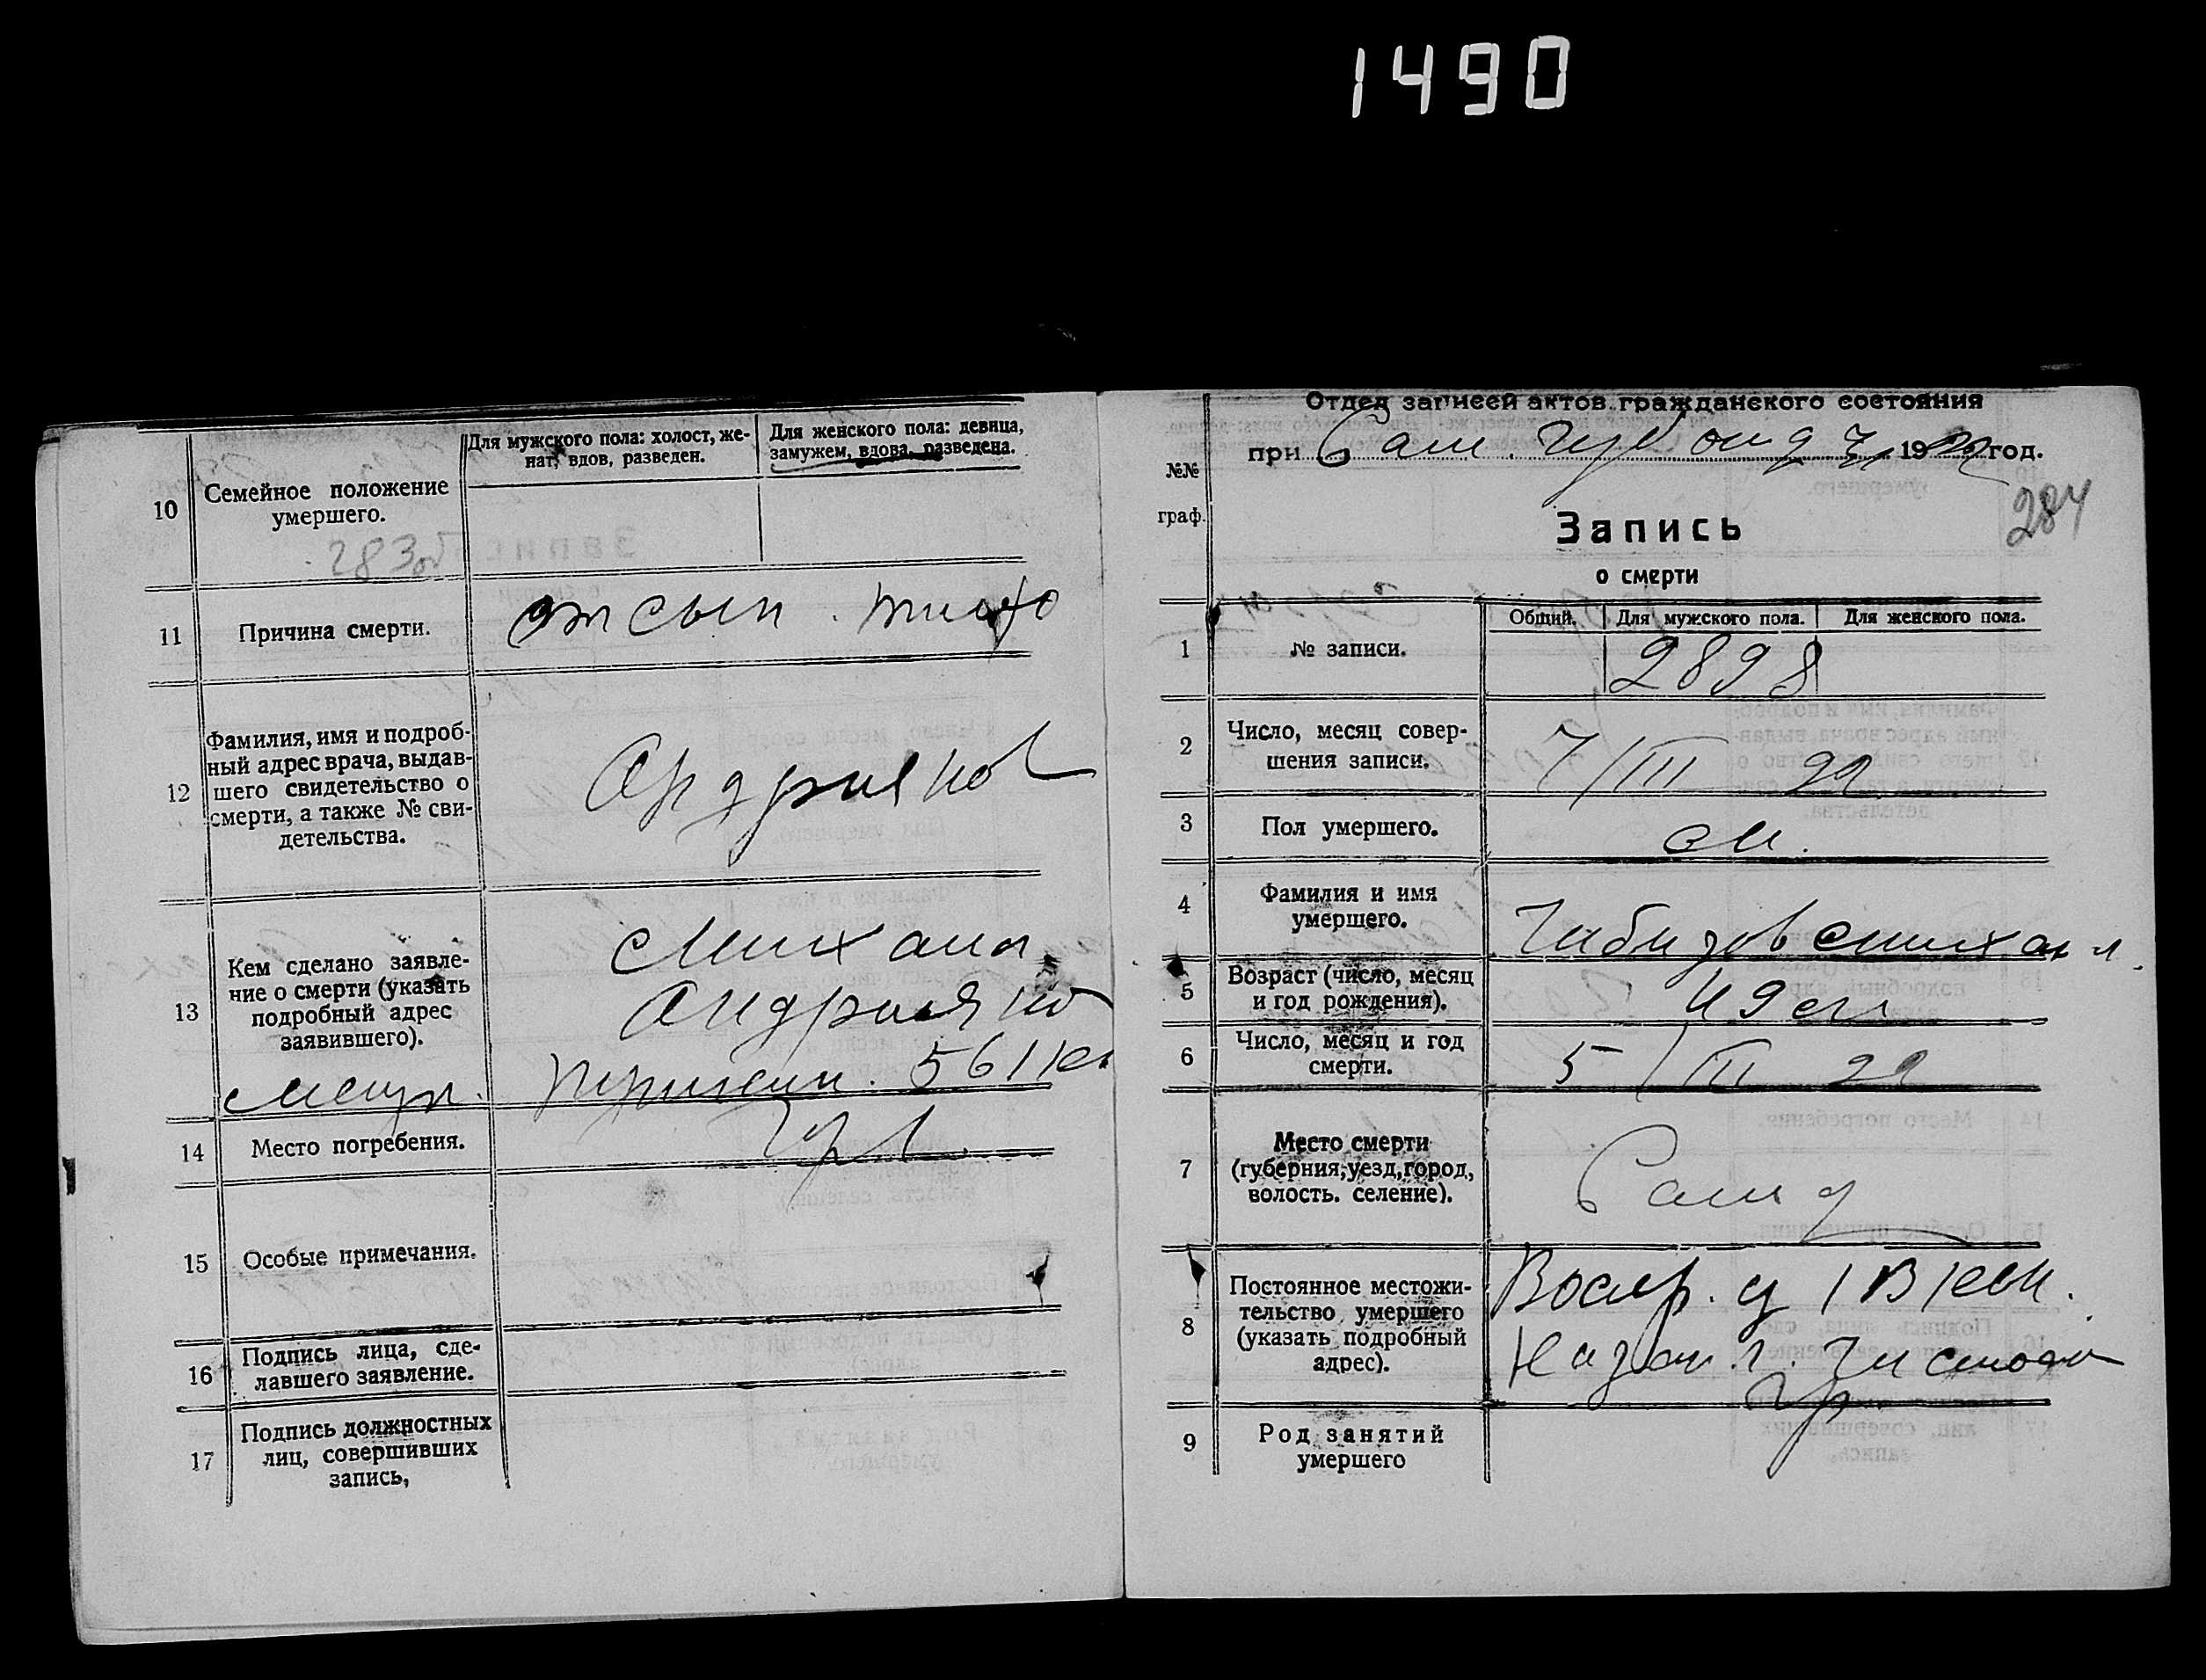 1490
10
Семейное положение
умершего.
Для мужского пола: холост, же-
нат, вдов, разведен.
Для женского пола: девица,
замужем, вдова, разведена.
283об
11
Причина смерти.
от сып. тифо
12
Фамилия, имя и подроб-
ный адрес врача, выдав-
шего свидетельство о
смерти, а также № сви-
детельства.
13
Кем сделано заявле-
ние о смерти (указать
подробный адрес
заявившего).
Михаил
Андриянов
561
14
Место погребения.
15
Особые примечания.
16
Подпись лица, сде-
лавшего заявление.
17
Подпись должностных
лиц, совершивших
запись,
Отдел записей актов гражданского состояния
при Сам. Губ 1922 год.
284
№№
граф.
Запись
о смерти
Общий. Для мужского пола. Для женского пола.
1
№ записи.
2898
2
Число, месяц совер-
шения записи.
7/III 22
3
Пол умершего.
м.
4
Фамилия и имя
умершего.
Михаил
5
Возраст (число, месяц
и год рождения).
49 л
6
Число, месяц и год
смерти.
5/III 22
7
Место смерти
(губерния, уезд, город,
волость. селение).
8
Постоянное местожи-
тельство умершего
(указать подробный
адрес).
Казан. г.
9
Род занятий
умершего